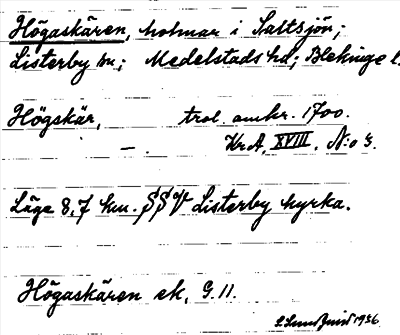 Högaskären, holmar i Saltsjön;
Listerby sn; Medelstads hd; Blekinge l.
Högskär, trol. omkr. 1700.
— „ — Kr.A. XVIII. N:o 3.
Läge 8,7 km. SSV Listerby kyrka.
Högaskären ek, G. 11.
1936